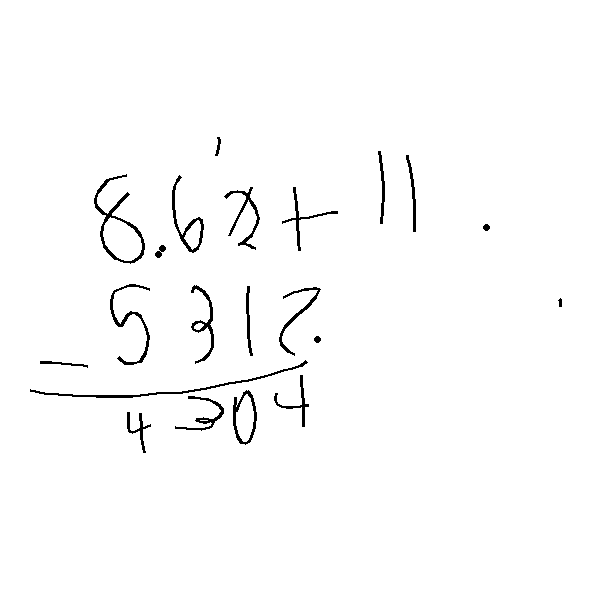 8.62+ 11.
- 5312.
4304